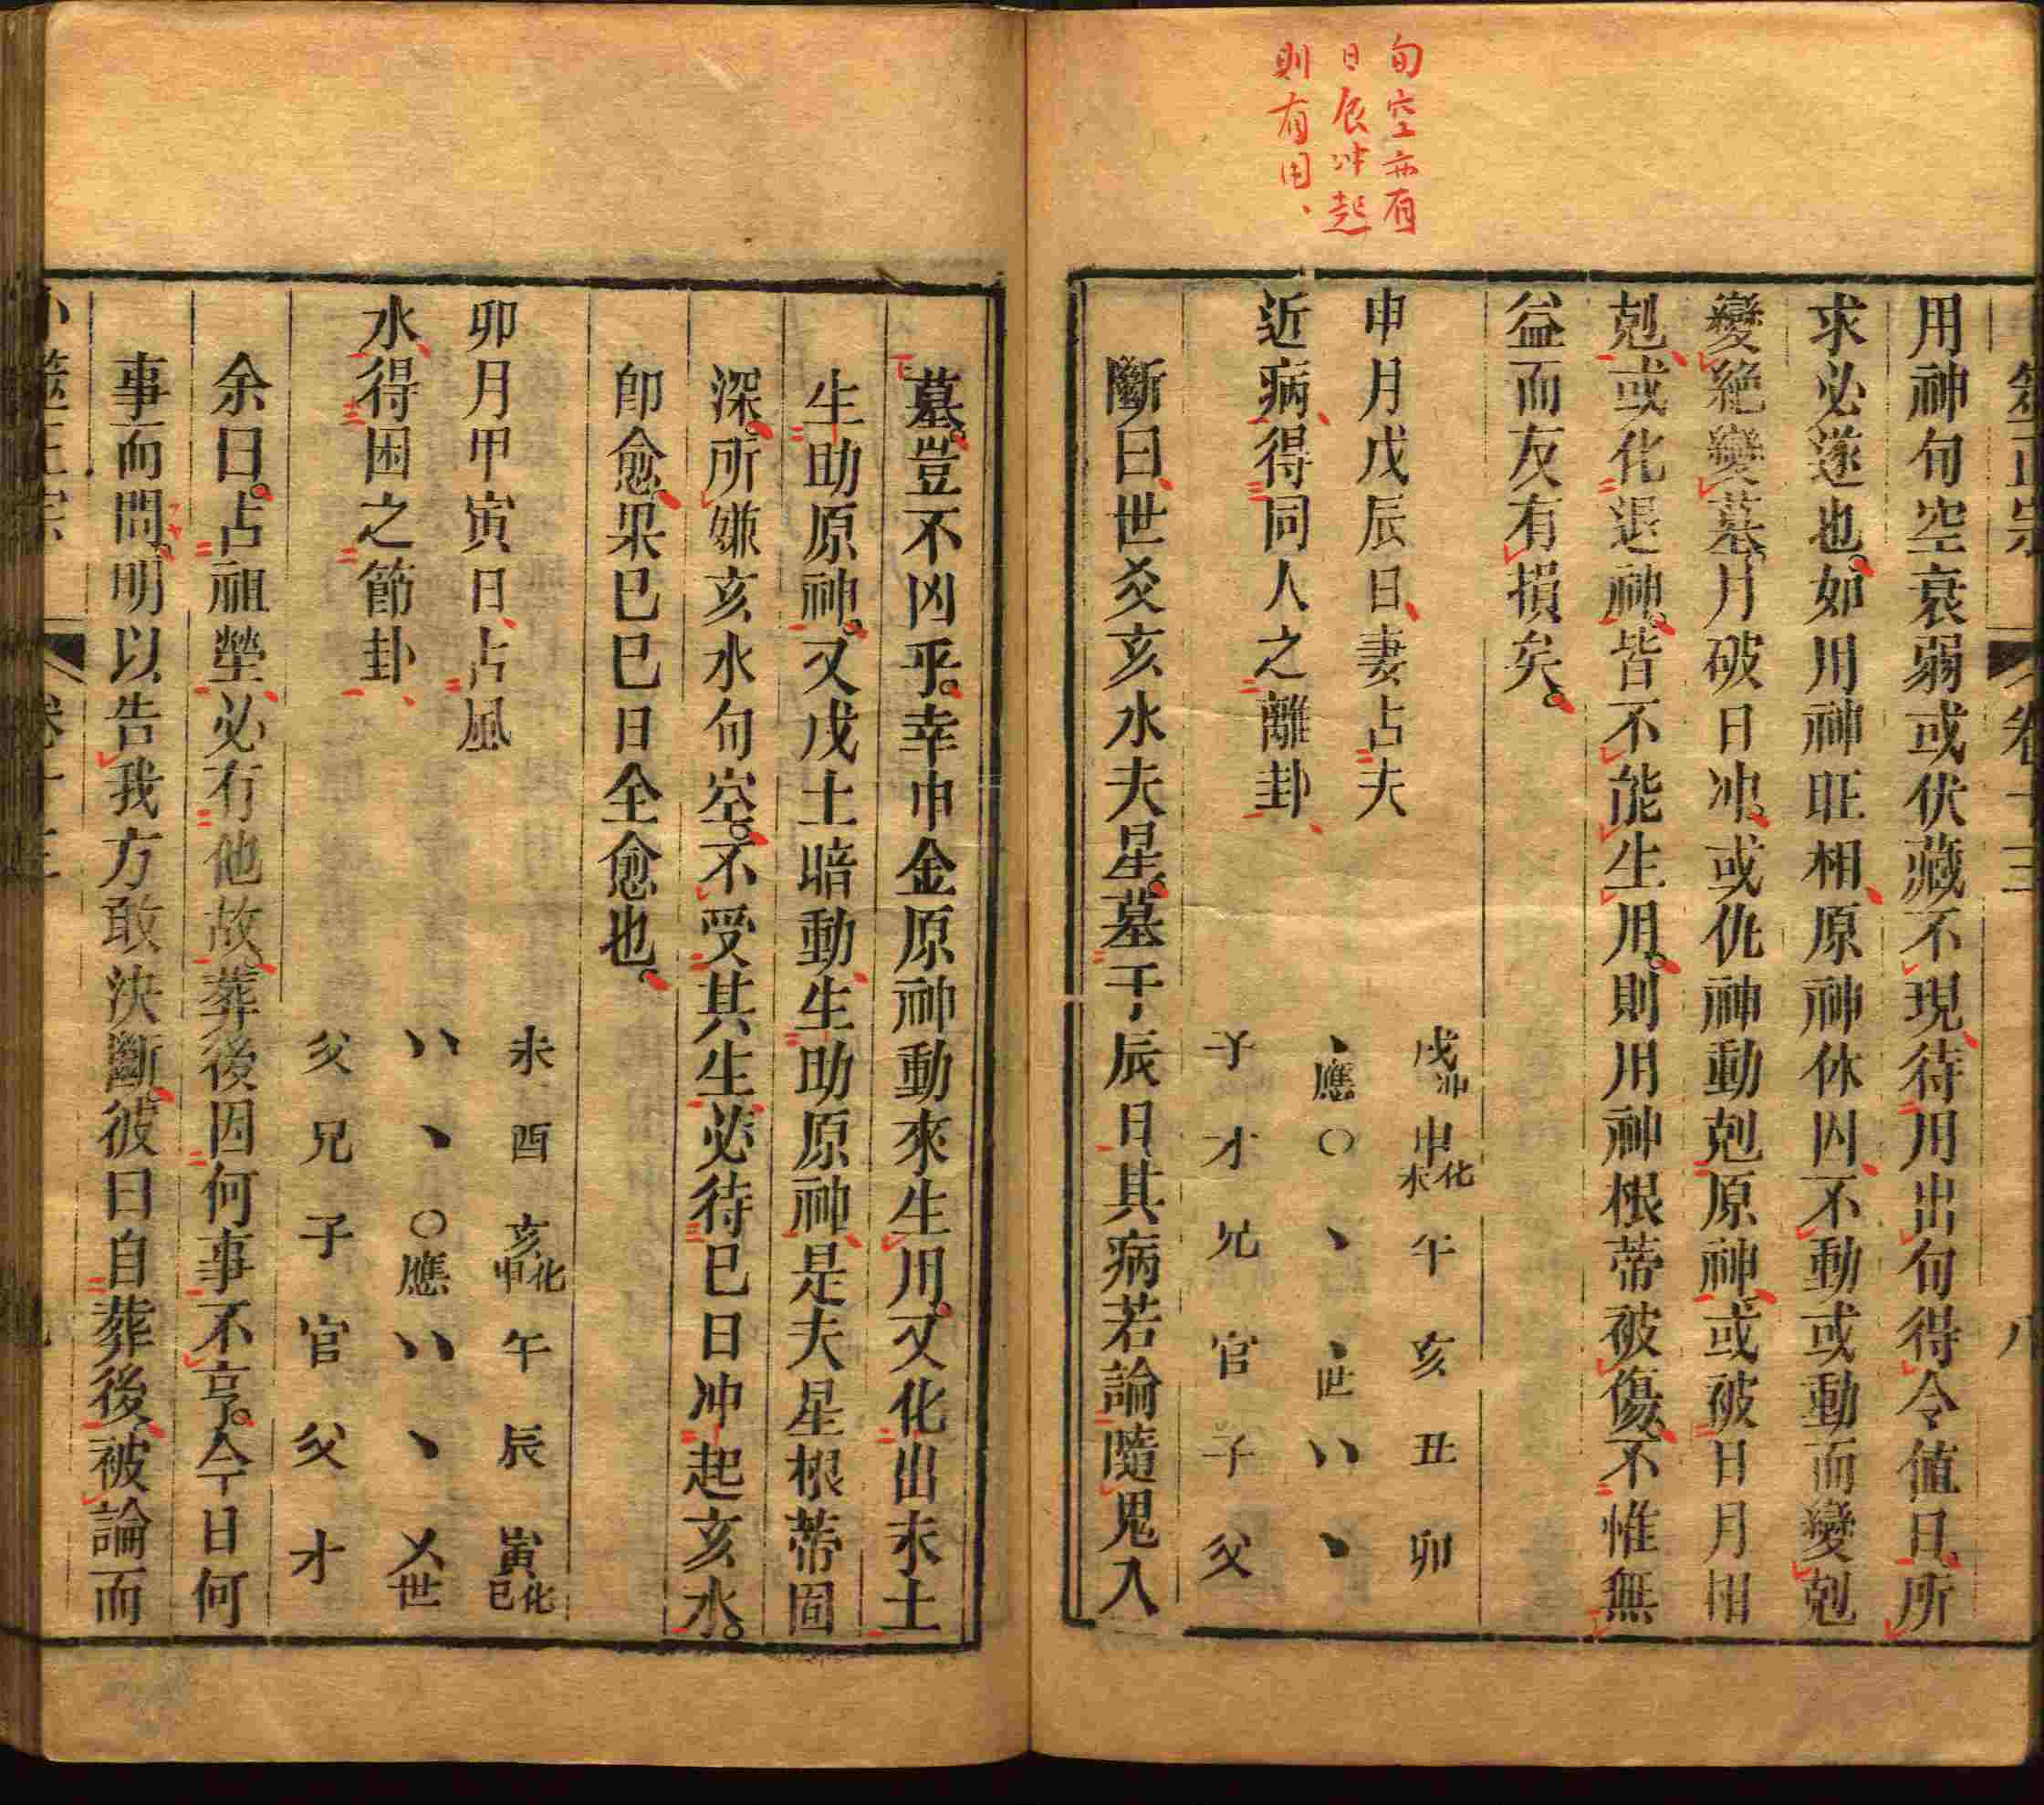 旬空亦有
日辰冲起
則有用、
筮正宗　卷十三　八
用神旬空衰弱或伏藏不現待用出旬得令值日所
求必遂也如用神旺相原神休囚不動或動而變剋
變絕變墓月破日冲或仇神動剋原神或被日月相
剋或化退神皆不能生用則用神根蒂被傷不惟無
益而反有損矣
申月戊辰日妻占夫
近病得同人之離卦
戌冲　申化未　午　亥　丑　卯
、應　〇　、　、世　〃　、
子　才　兄　官　子　父
斷曰世爻亥水夫星墓于辰日其病若論隨鬼入
墓豈不凶乎幸申金原神動來生用又化出未土
生助原神又戌土暗動生助原神是夫星根蒂固
深所嫌亥水旬空不受其生必待巳日冲起亥水
即愈果巳巳日全愈也
卯月甲寅日占風
水得困之節卦
未　酉　亥化申　午　辰　寅化巳
〃　、　〇應　〃　、　乂世
父　兄　子　官　父　才
余曰占祖塋必有他故葬後因何事不亨今日何
事而問明以告我方敢決斷彼曰自葬後被論而
卜筮正宗　卷十三